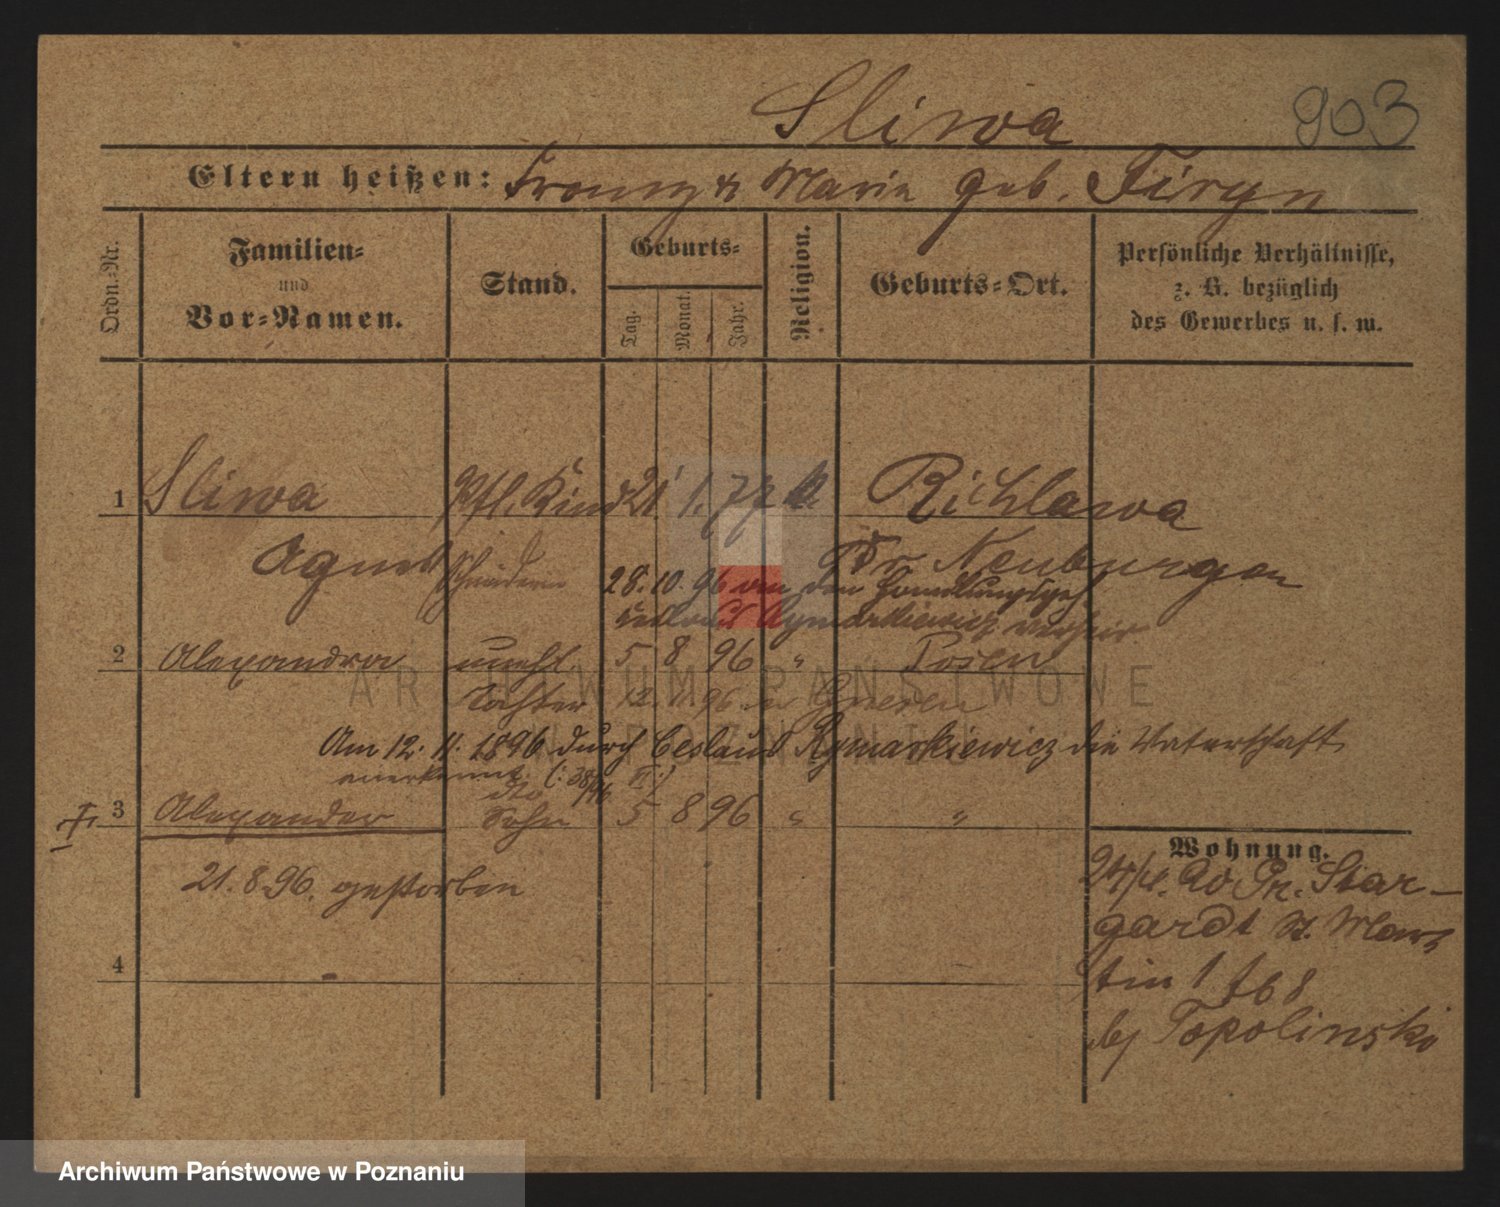 Sliwa 903
Eltern heißen: Franz & Marie geb. Firyn
Ordn.-Nr.
Familien-
und
Vor-Namen.
Stand.
Geburts-
Tag.
Monat.
Jahr.
Religion.
Geburts-Ort.
Persönliche Verhältnisse,
z. B. bezüglich
des Gewerbes u. s. w.
1 Sliwa Pfl. Kind 21. 1. 77 k Richlawa
Agnes Schneiderin Kr. Neuburg
28. 10. 96 den Handlungsgeh.
Rymarkiewicz
2 Alexandra unehl. 5 8 96 " Posen
Tochter 12. 11. 96 Gnesen
Am 12. 11. 1896 durch Ceslaus Rymarkiewicz die Vaterschaft
anerkannt (: 38/96 VI :)
dto
3 Alexander Sohn 5 8 96 " "
21. 8. 96. gestorben
Wohnung.
Pr. Star-
gardt St. Mar-
tin 1 68
bj Topolinski
4
ARCHIWUM PAŃSTWOWE
W POZNANIU
Archiwum Państwowe w Poznaniu